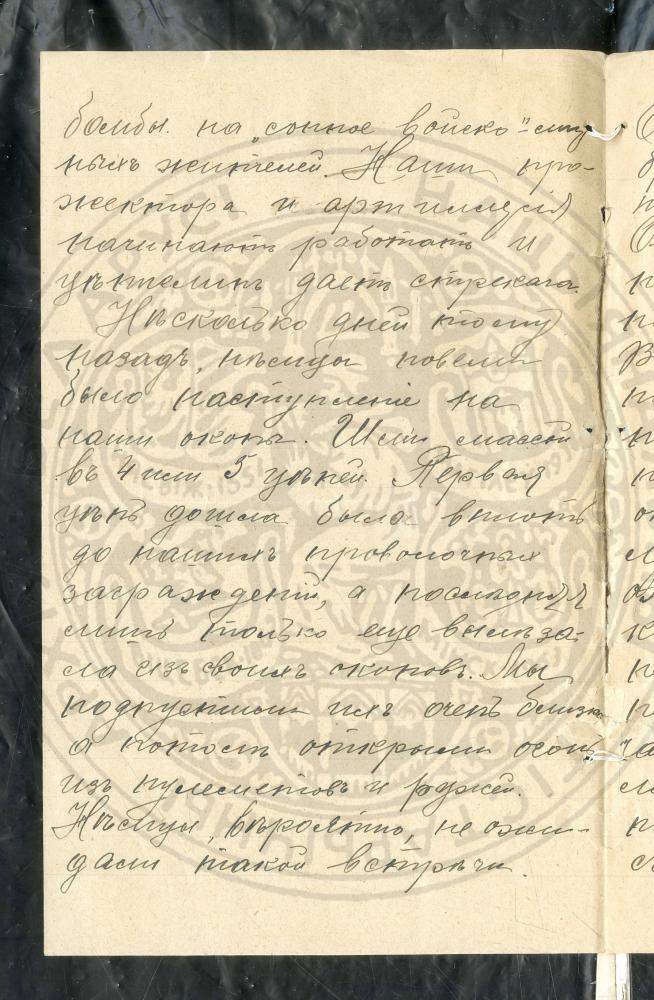 бомбы на „сонное войско“ - мир
ныхъ жителей. Наши про-
жектора и артиллерія
начинаютъ работать и
цѣппелинъ даетъ стрекача.
Нѣсколько дней тому
назадъ, нѣмцы повели
было наступленіе на
наши окопы. Шли массой
въ 4 или 5 цѣпей. Первая
цѣпь дошла была вплоть
до нашихъ проволочныхъ
загражденій, а послѣдняя
лишь только еще вылѣза-
ла изъ своихъ окоповъ. Мы
подпустили ихъ очень близко
а потомъ открыли огонь
изъ пулеметовъ и ружей.
Нѣмцы, вѣроятно, не ожи-
дали такой встрѣчи.